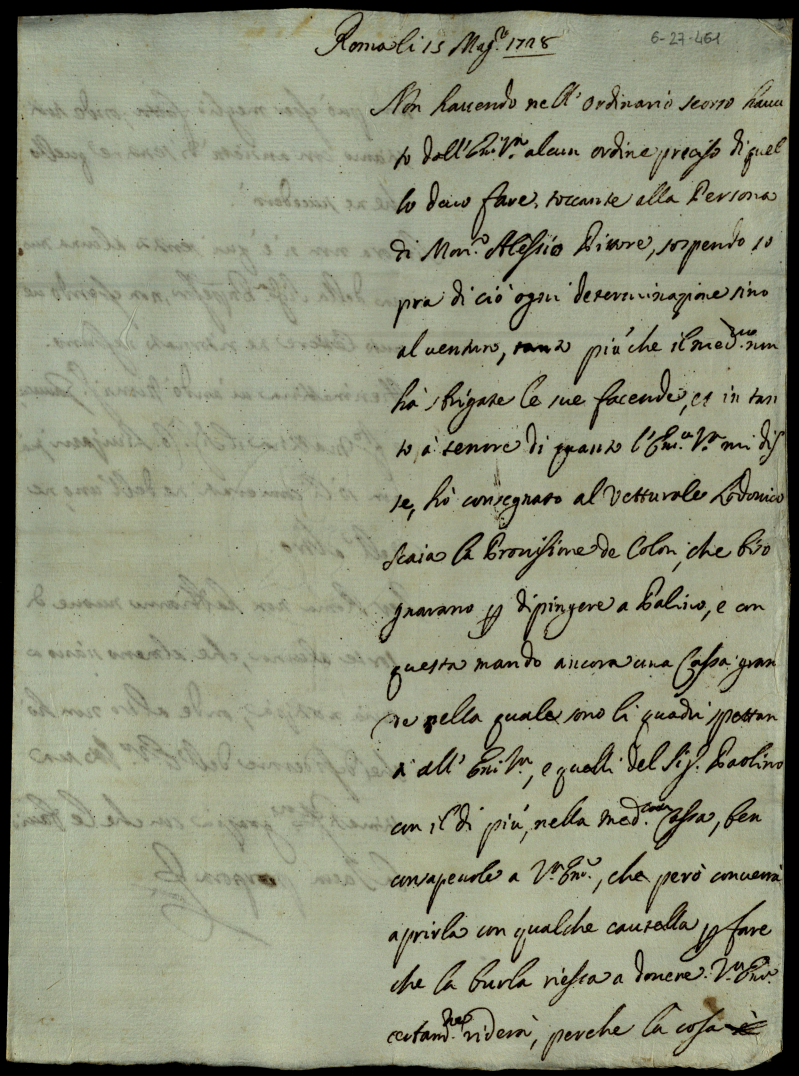 Roma li 15 Magº. 1728
6-27-461
Non hauendo nell' ordinario scorso hauu
to dall' Em. Vra alcun ordine preciso di quel
lo deuo fare, toccante alla Persona
di Mon.r Alessio Pittore, sospendo so
pra di ciò ogni determinazione sino
al venturo, tanto più che il med.mo non
hà sbrigate le sue facende, et in tan
to à tenore di quanto l'Em.a V.ra mi dis
se, hò consegnato al Vetturale Lodouico
Scaia la Prouisione de Colori, che biso
gnauano p dipingere a Paluco, e con
questa mando ancora una Cassa gran
de nella quale sono li quadri spettan
ti all' Em. Vra, e quelli del Sig.r Paolino
con il di più, nella med.ma Cassa, ben
consapeuole a V.ra Em.a, che però conuerrà
aprirla con qualche cautella p fare
che la burla riesca a douere. V.ra Em.a
certam.te riderà, perche la cosa